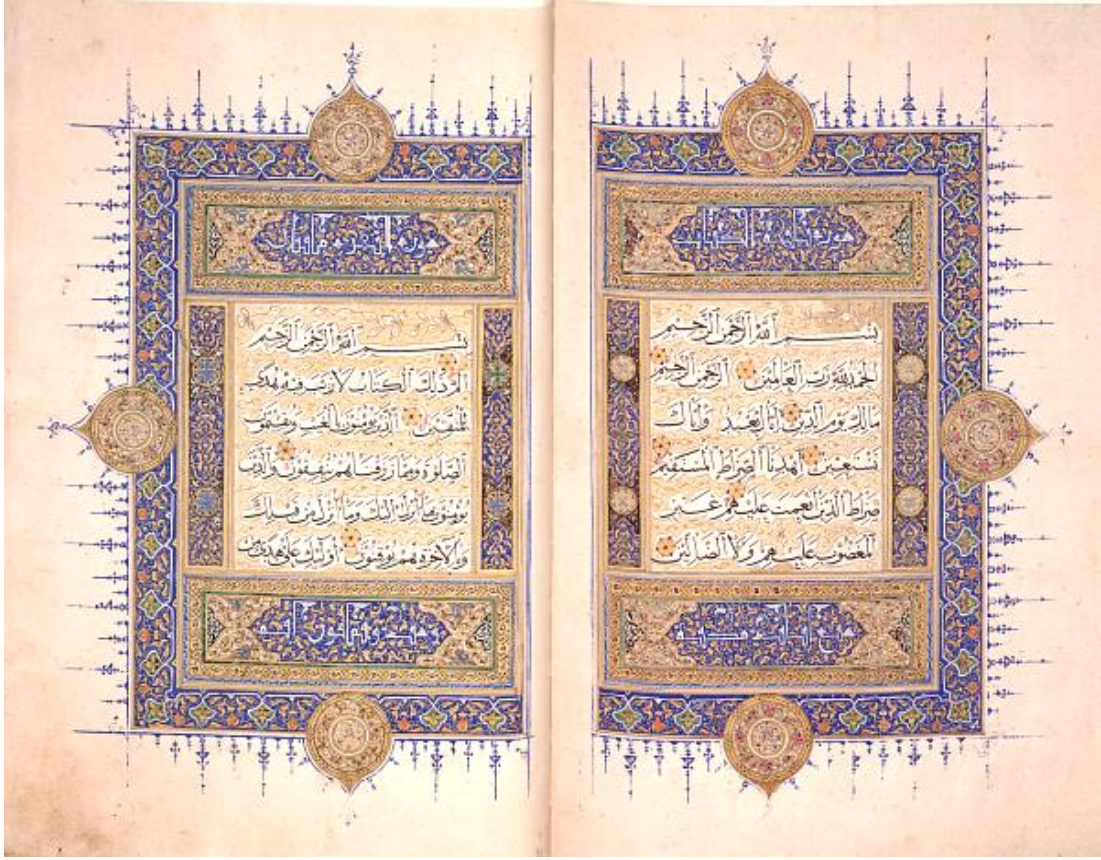 سورة فاتحة الكتاب
بسم الله الرحمن الرحيم
الحمد لله رب العالمين الرحمن الرحيم
مالك يوم الدين إياك نعبد وإياك
نستعين اهدنا الصراط المستقيم
صراط الذين أنعمت عليهم غير
المغضوب عليهم ولا الضالين
سبع آيات مكية
سورة البقرة مائتان
بسم الله الرحمن الرحيم
الم ذلك الكتاب لا ريب فيه هدى
للمتقين الذين يؤمنون بالغيب ويقيمون
الصلوة ومما رزقناهم ينفقون والذين
يؤمنون بما أنزل إليك وما أنزل من قبلك
وبالآخرة هم يوقنون أولئك على هدى من
وست وثمانون آية